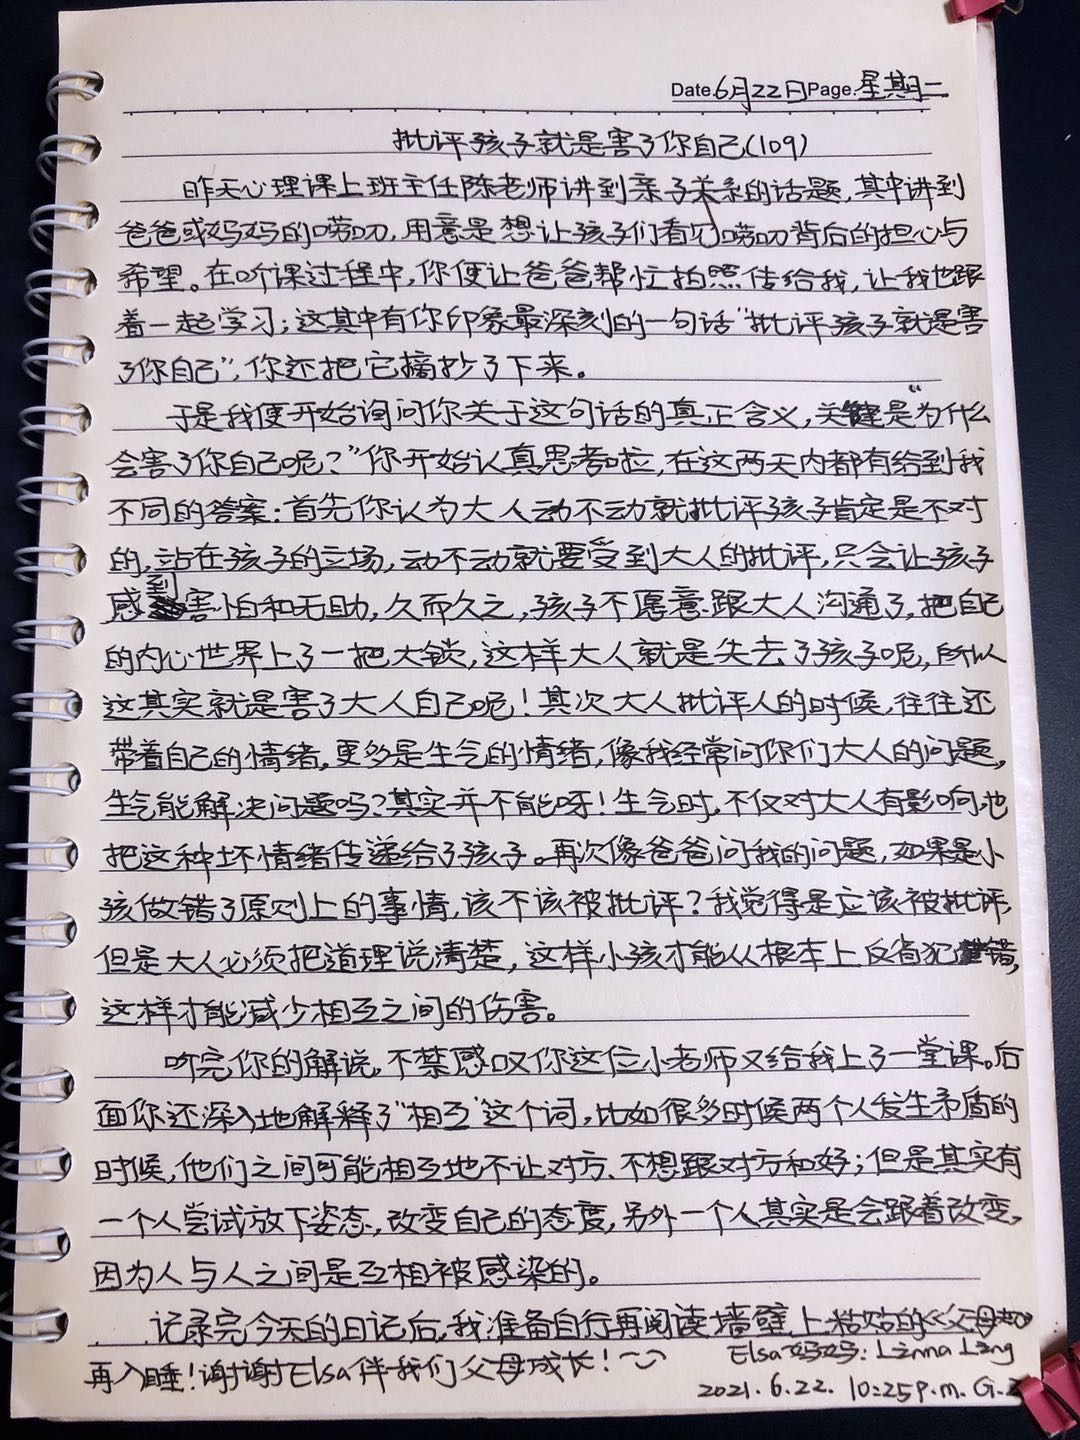 Date.6月22日Page.星期二
批评孩子就是害了你自己(109)
昨天心理课上班主任陈老师讲到亲子关系的话题,其中讲到
爸爸或妈妈的唠叨,用意是想让孩子们看见唠叨背后的担心与
希望。在听课过程中,你便让爸爸帮忙拍照传给我,让我也跟
着一起学习;这其中有你印象最深刻的一句话"批评孩子就是害
了你自己",你还把它摘抄了下来。
于是我便开始询问你关于这句话的真正含义,关键是"为什么
会害了你自己呢?"你开始认真思考啦,在这两天内都有给到我
不同的答案:首先你认为大人动不动就批评孩子肯定是不对
的,站在孩子的立场,动不动就要受到大人的批评,只会让孩子
感到害怕和无助,久而久之,孩子不愿意跟大人沟通了,把自己
的内心世界上了一把大锁,这样大人就是失去了孩子呢,所以
这其实就是害了大人自己呢!其次大人批评人的时候,往往还
带着自己的情绪,更多是生气的情绪,像我经常问你们大人的问题,
生气能解决问题吗?其实并不能呀!生气时,不仅对大人有影响,也
把这种坏情绪传递给了孩子。再次像爸爸问我的问题,如果是小
孩做错了原则上的事情,该不该被批评?我觉得是应该被批评,
但是大人必须把道理说清楚,这样小孩才能从根本上反省犯错,
这样才能减少相互之间的伤害。
听完你的解说,不禁感叹你这位小老师又给我上了一堂课。后
面你还深入地解释了"相互"这个词,比如很多时候两个人发生矛盾的
时候,他们之间可能相互地不让对方、不想跟对方和好;但是其实有
一个人尝试放下姿态,改变自己的态度,另外一个人其实是会跟着改变,
因为人与人之间是互相被感染的。
记录完今天的日记后,我准备自行再阅读墙壁上粘贴的《父母
再入睡!谢谢Elsa伴我们父母成长!
Elsa妈妈:Linna Ling
2021.6.22. 10:25p.m. G.Z